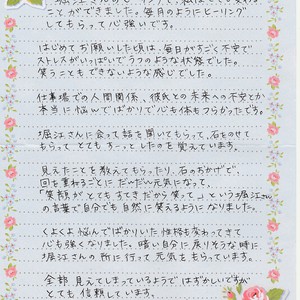 ことができました。毎月のようにヒーリング
してもらって心強いです。
はじめてお願いした頃は、毎日がすごく不安で
ストレスがいっぱいでうつのような状態でした。
笑うこともできないような感じでした。
仕事場での人間関係、彼氏との未来への不安とか
本当に悩んでばかりで心も体もつらかったです。
堀江さんに会って話を聞いてもらって、石をのせて
もらってとてもすーっとしたのを覚えています。
見えたことを教えてもらったり、石のおかげで、
回を重ねるごとにだんだん元気になって、
「笑顔がとてもすてきだから笑って。」という堀江さん
の言葉で自分でも自然に笑えるようになりました。
くよくよ悩んでばかりいた性格も変わってきて
心も強くなりました。暗い自分に戻りそうな時に
堀江さんの所に行って元気をもらっています。
全部見えてしまっているようではずかしいですが
とても信頼しています。